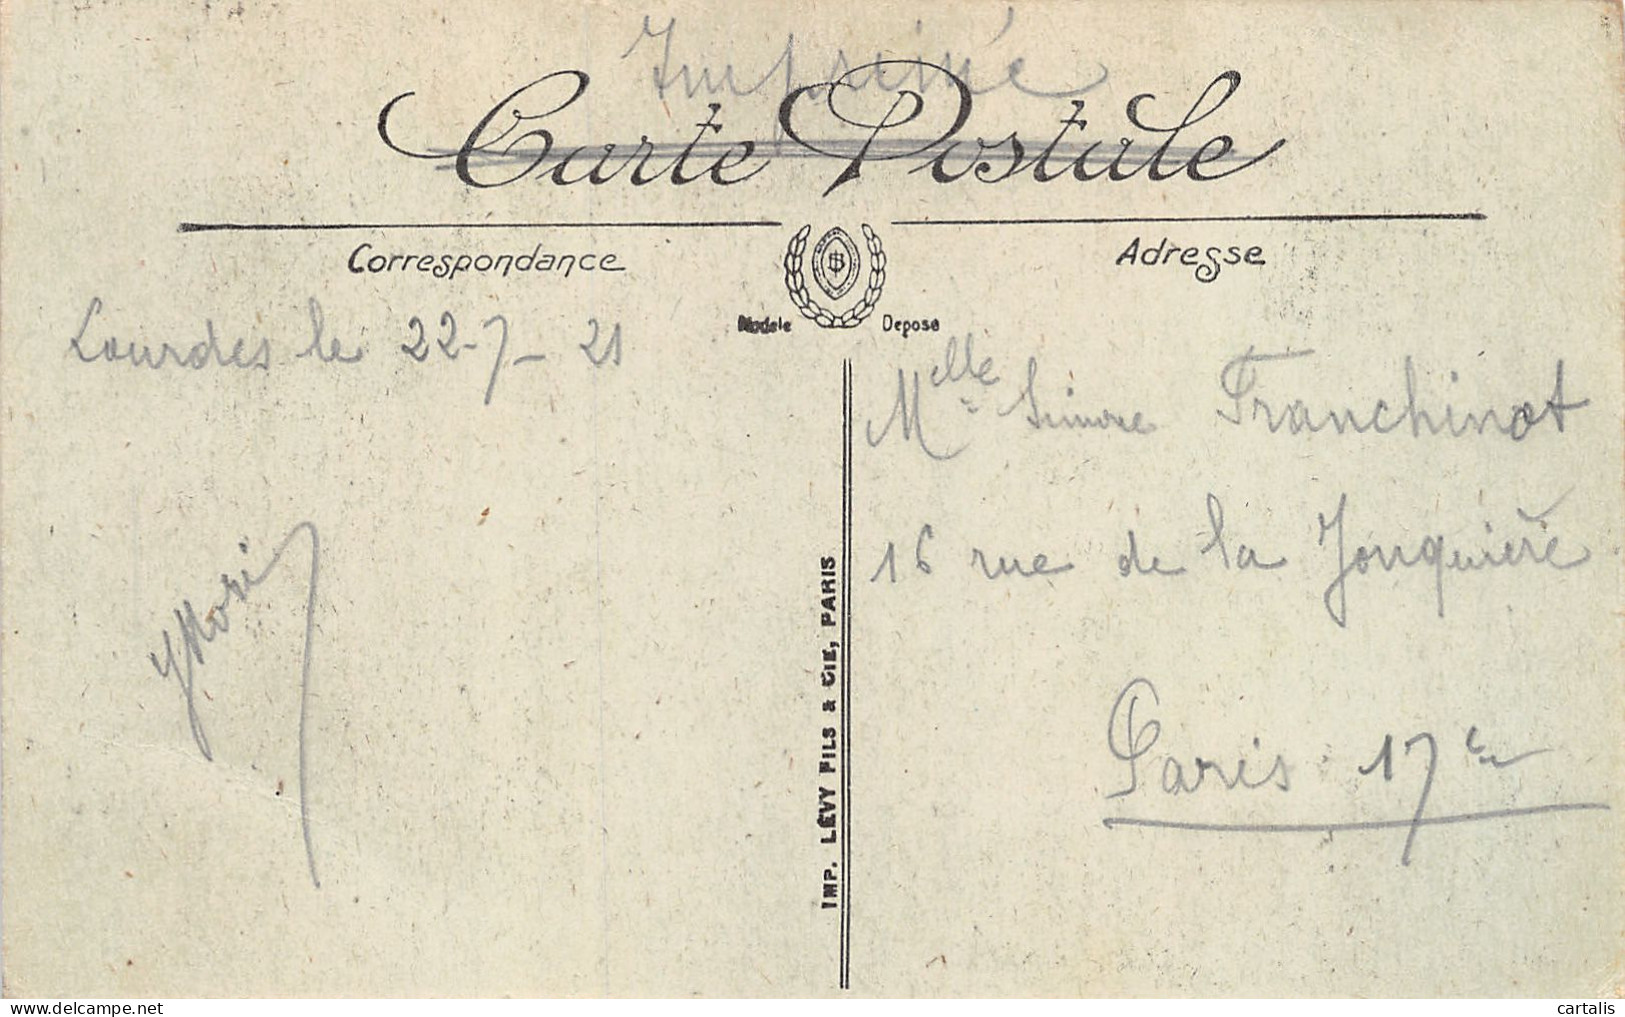 Imprimé
Carte Postale
Correspondance
Adresse
Modele Deposé
Lourdes le 22-7-21
Mlle Simone Franchinot
16 rue de la Jonquière
Paris 17e
IMP. LÉVY FILS & CIE, PARIS
cartalis